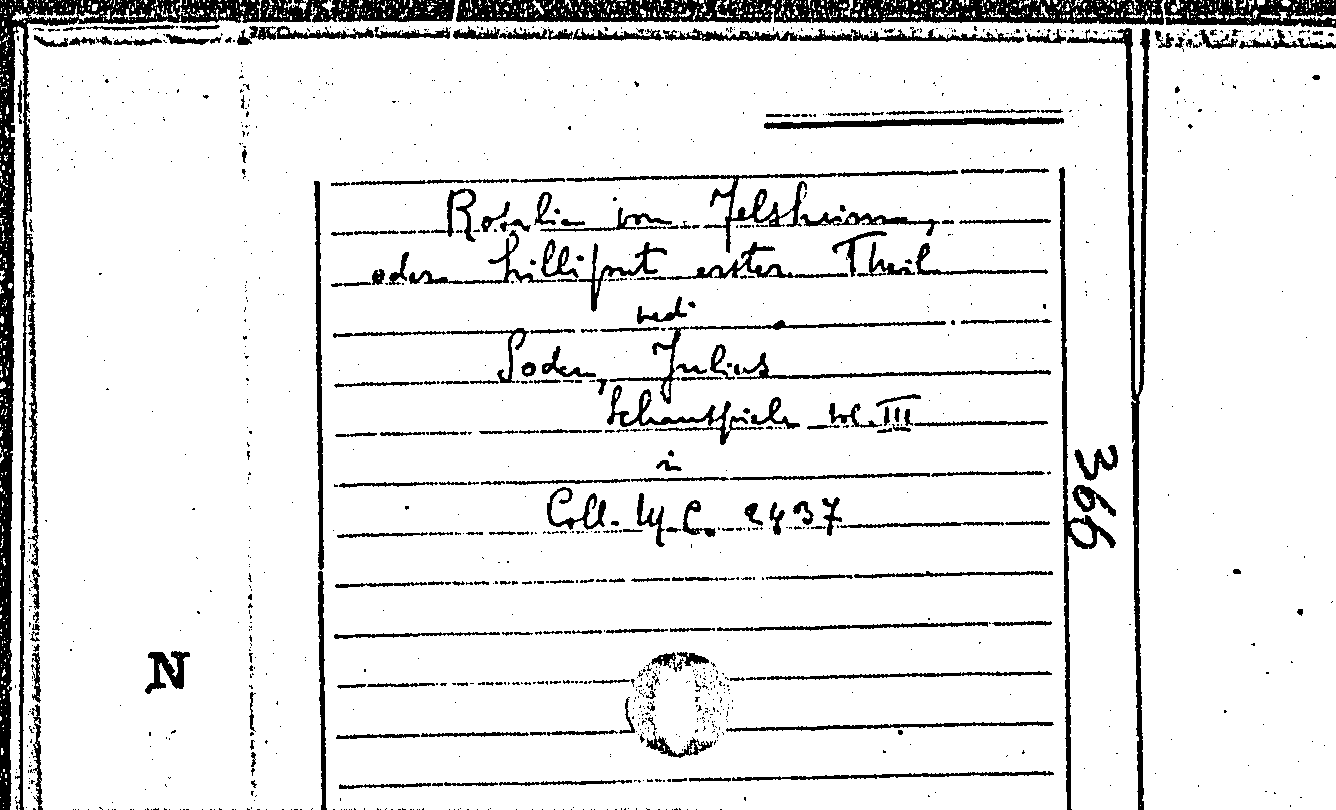 Rosalie von Felsheim,
oder Lilliput erster Theil
vedi
Soden, Julius
Schauspiele vol. III
in
Coll. M.C. 2437
366
N